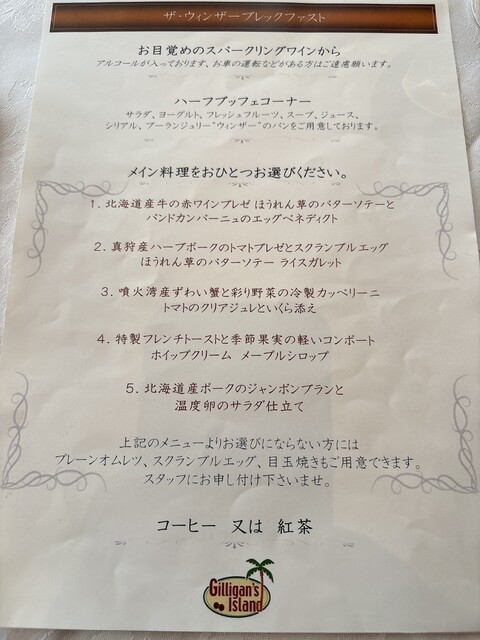 ザ・ウィンザーブレックファスト
お目覚めのスパークリングワインから
アルコールが入っております、お車の運転などがある方はご遠慮願います。
ハーフブッフェコーナー
サラダ、ヨーグルト、フレッシュフルーツ、スープ、ジュース、
シリアル、ブーランジュリー“ウィンザー”のパンをご用意しております。
メイン料理をおひとつお選びください。
1. 北海道産牛の赤ワインブレゼ ほうれん草のバターソテーと
パンドカンパーニュのエッグベネディクト
2. 真狩産ハーブポークのトマトブレゼとスクランブルエッグ
ほうれん草のバターソテー ライスガレット
3. 噴火湾産ずわい蟹と彩り野菜の冷製カッペリーニ
トマトのクリアジュレといくら添え
4. 特製フレンチトーストと季節果実の軽いコンポート
ホイップクリーム メープルシロップ
5. 北海道産ポークのジャンボンブランと
温度卵のサラダ仕立て
上記のメニューよりお選びにならない方には
プレーンオムレツ、スクランブルエッグ、目玉焼きもご用意できます。
スタッフにお申し付け下さいませ。
コーヒー 又は 紅茶
Gilligan's
Island